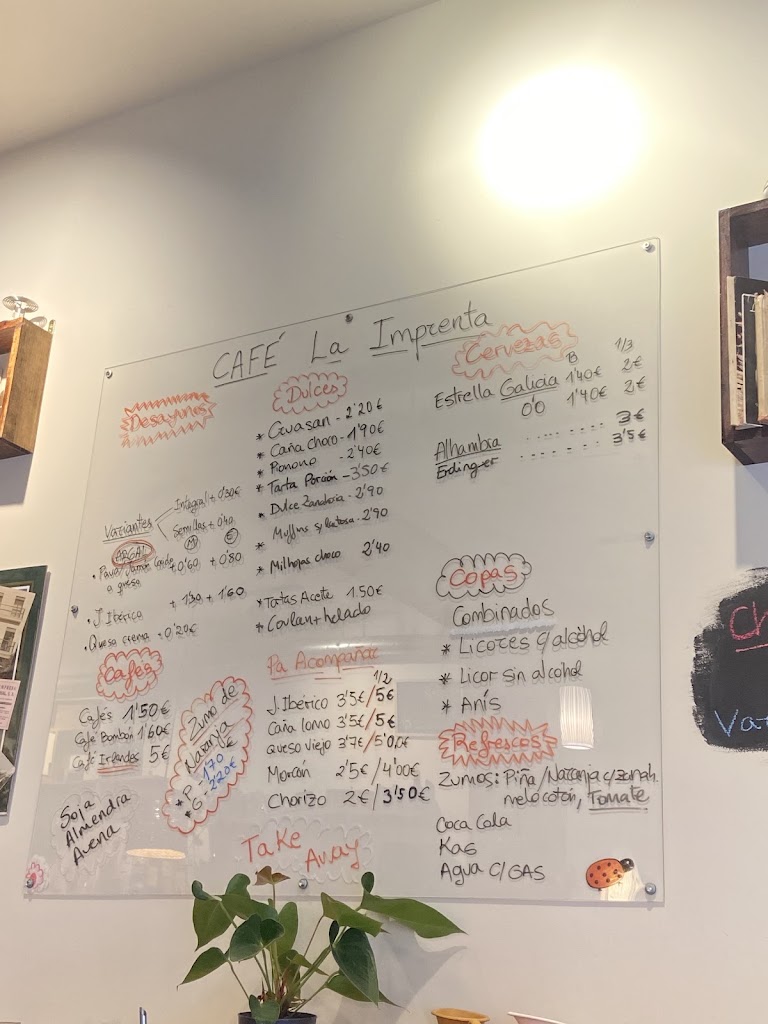 CAFÉ La Imprenta
Desayunos
Variantes
Integral + 0'30€
Semillas + 0'40
M E
ARGAL
• Pavo/Jamón Cocido + 0'60 + 0'80
a queso
• J. Ibérico + 1'30 + 1'60
• Queso crema + 0'20€
Cafés
Cafés 1'50€
Café Bombón 1'60€
Café Irlandés 5€
Soja
Almendra
Avena
Zumo de
Naranja
* P - 1'70€
* G - 2'20€
Dulces
* Cruasan - 2'20€
* Caña Choco - 1'90€
* Ronono - 2'40€
* Tarta Porción - 3'50€
* Dulce Zanahoria - 2'90
Muffins s/lactosa - 2'90
* Milhojas choco 2'40
* Tortas Aceite 1.50€
* Coulan + helado
Pa Acompañar
1/2
J. Ibérico 3'5€/5€
Caña lomo 3'5€/5€
Queso Viejo 3'7€/5'00€
Morcón 2'5€/4'00€
Chorizo 2€/3'50€
Take
Away
Cervezas
B 1/3
Estrella Galicia 1'40€ 2€
0'0 1'40€ 2€
Alhambra ........ 3€
Erdinger ........ 3'5€
Copas
Combinados
* Licores c/alcohol
* Licor sin alcohol
* Anís
Refrescos
Zumos: Piña/Naranja c/zanah.
melocotón, Tomate
Coca Cola
Kas
Agua C/GAS
Ch
Va